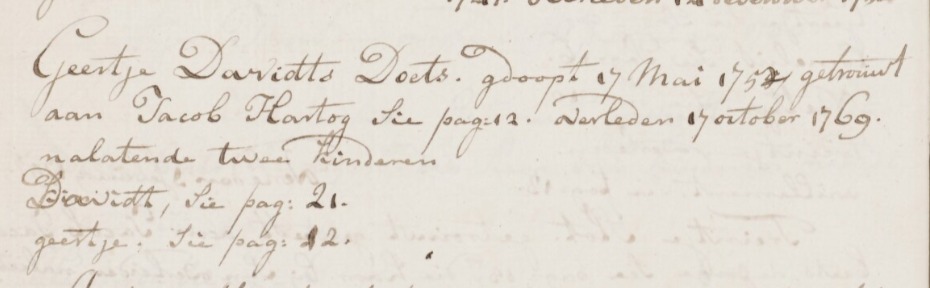 Geertje Davidts Doets. gdoopt 17 Mai 1752, getrouwt
aan Jacob Hartog Sie pag:12. overleden 17 october 1769.
nalatende twee kinderen
Davidt, Sie pag: 21.
geertje. Sie pag: 12.